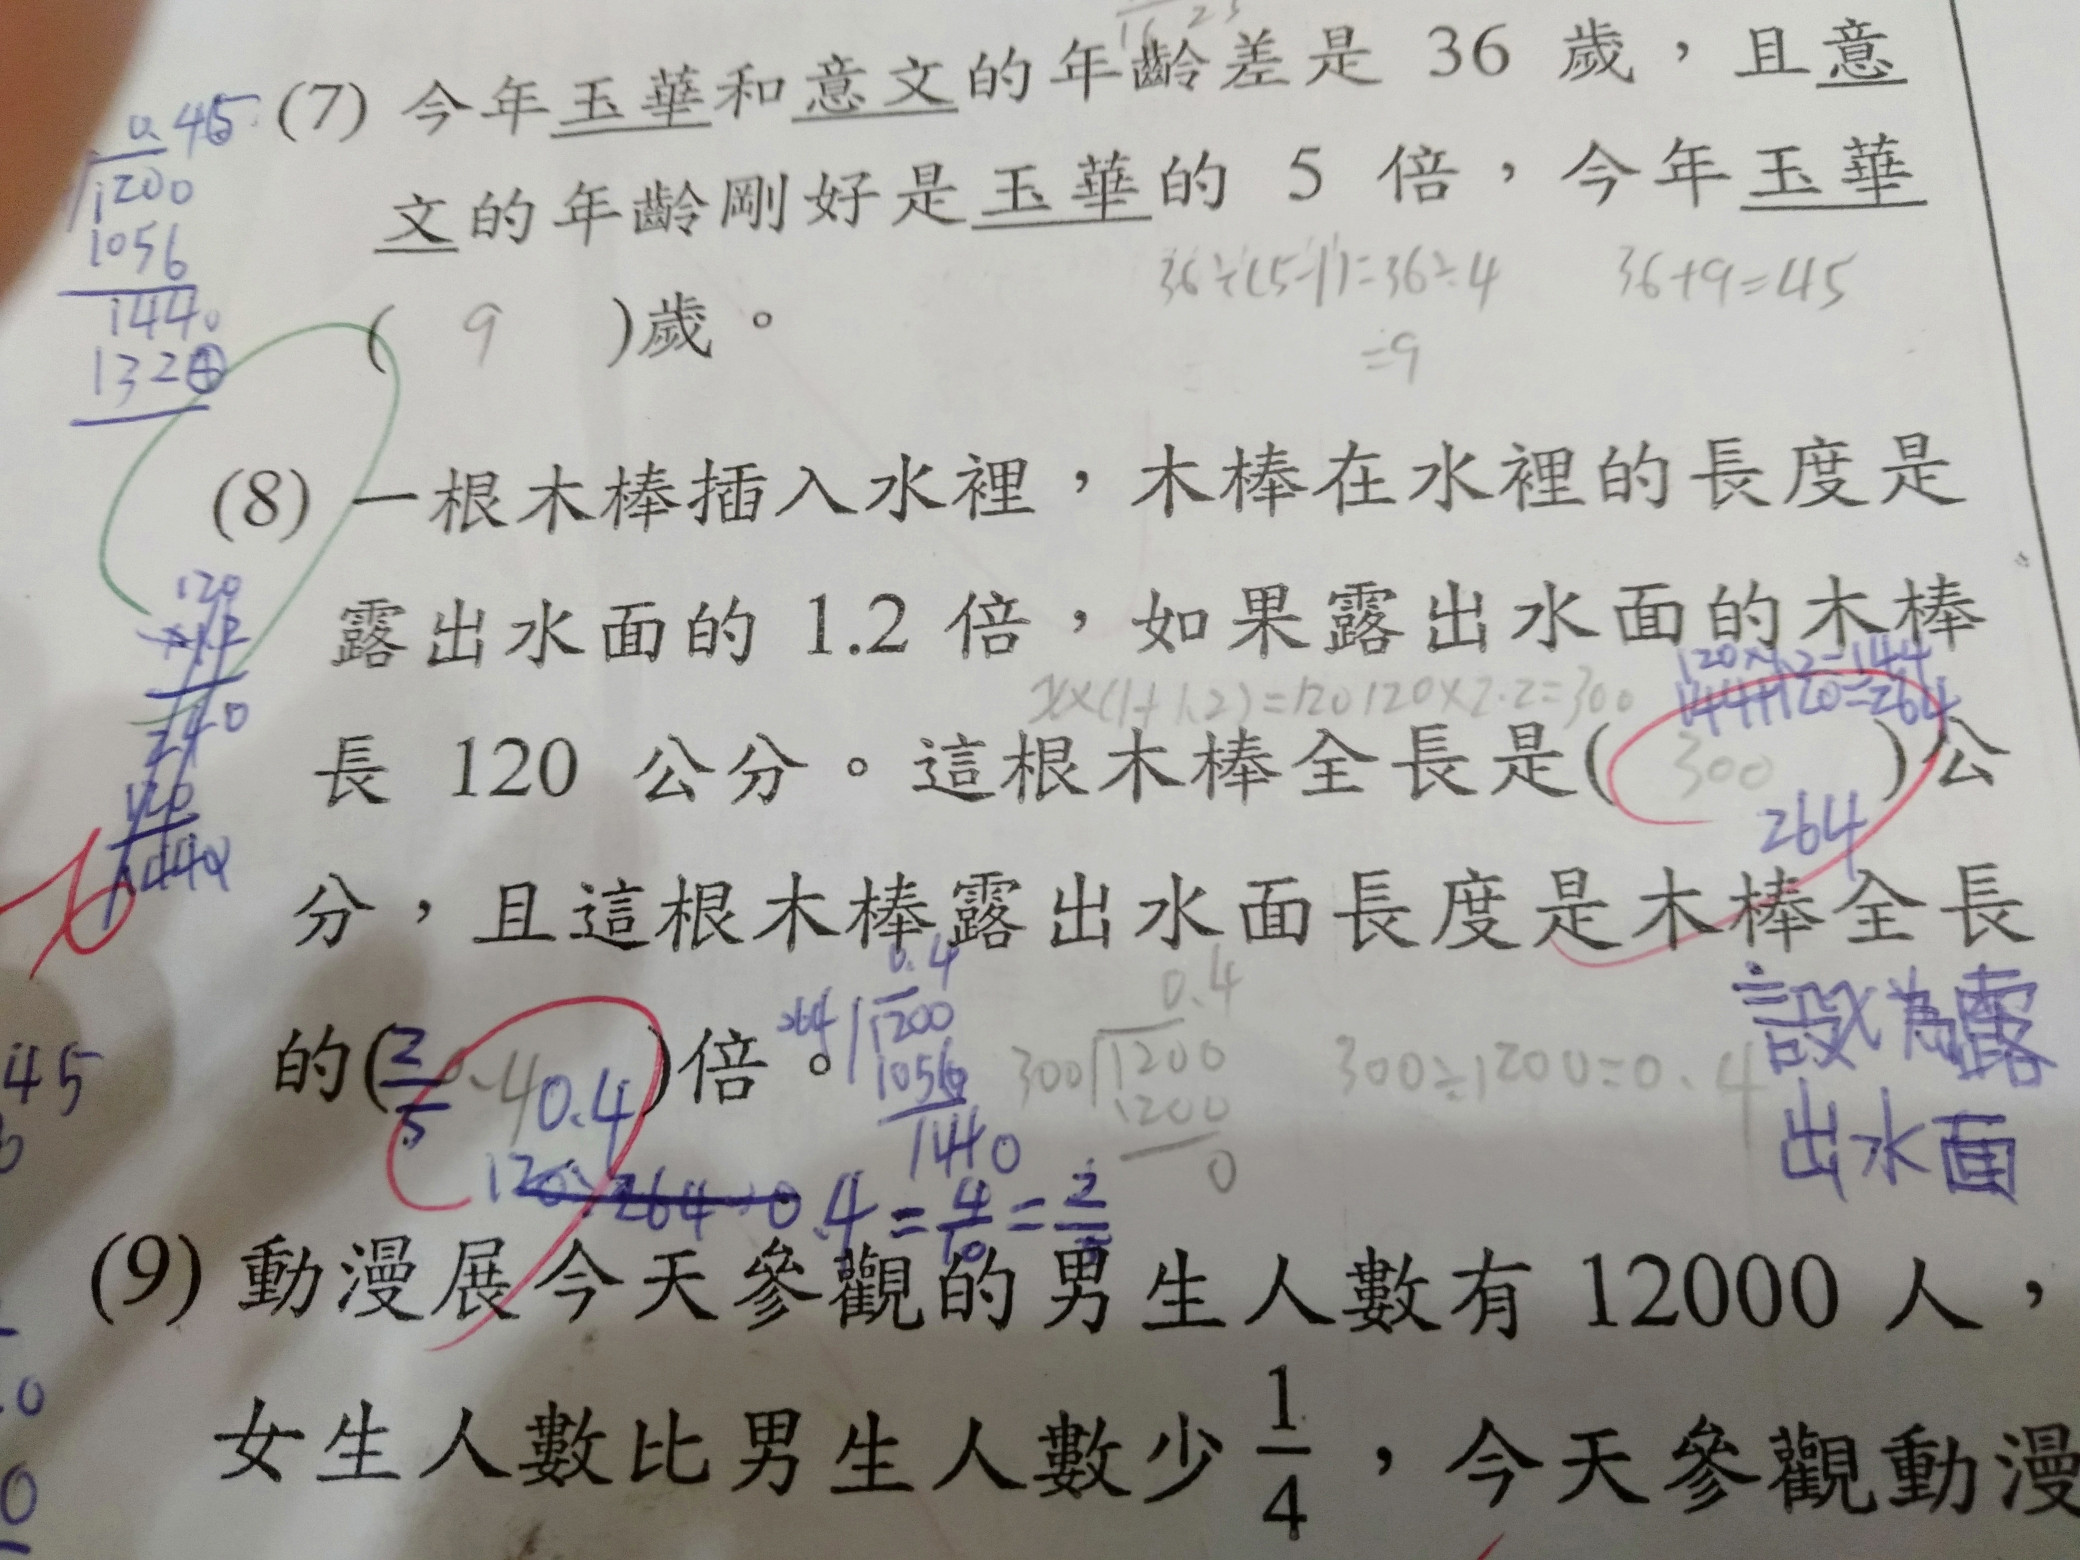 (7) 今年玉華和意文的年齡差是 36 歲，且意
文的年齡剛好是玉華的 5 倍，今年玉華
36÷(5-1)=36÷4 36+9=45
( 9 )歲。
=9
0.45
1200
1056
1440
1320
(8) 一根木棒插入水裡，木棒在水裡的長度是
露出水面的 1.2 倍，如果露出水面的木棒
120×1.2=144
x×(1+1.2)=120 120×2.2=300 144+120=264
長 120 公分。這根木棒全長是( 300 )公
264
120
240
120
1440
分，且這根木棒露出水面長度是木棒全長
的(2/5 0.4 0.4)倍。
0.4
264 1200
1056
1440
0.4
300 1200
1200
0
300÷1200=0.4
設x為露
出水面
120÷264=0.4=4/10=2/5
45
(9) 動漫展今天參觀的男生人數有 12000 人，
女生人數比男生人數少 1/4，今天參觀動漫